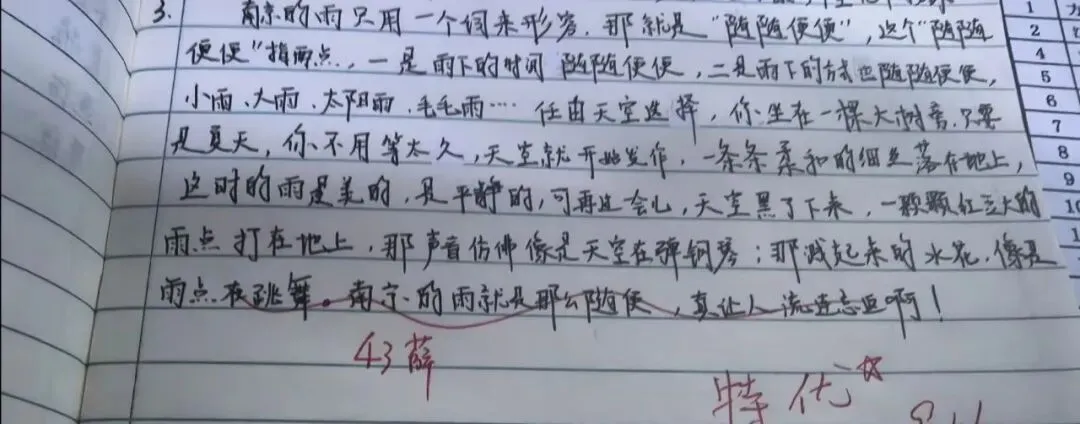 3. 南京的雨只用一个词来形容,那就是“随随便便”,这个“随随
便便”指两点,一是雨下的时间随随便便,二是雨下的方式也随随便便,
小雨、大雨、太阳雨、毛毛雨……任由天空选择,你坐在一棵大树旁,只要
是夏天,你不用等太久,天空就开始发作,一条条柔和的细丝落在地上,
这时的雨是美的,是平静的,可再过会儿,天空黑了下来,一颗颗红豆大的
雨点打在地上,那声音仿佛像是天空在弹钢琴;那溅起来的水花,像是
雨点在跳舞。南京的雨就是那么随便,真让人流连忘返啊!
43薛
特优
1
2
4
5
6
7
8
9
10